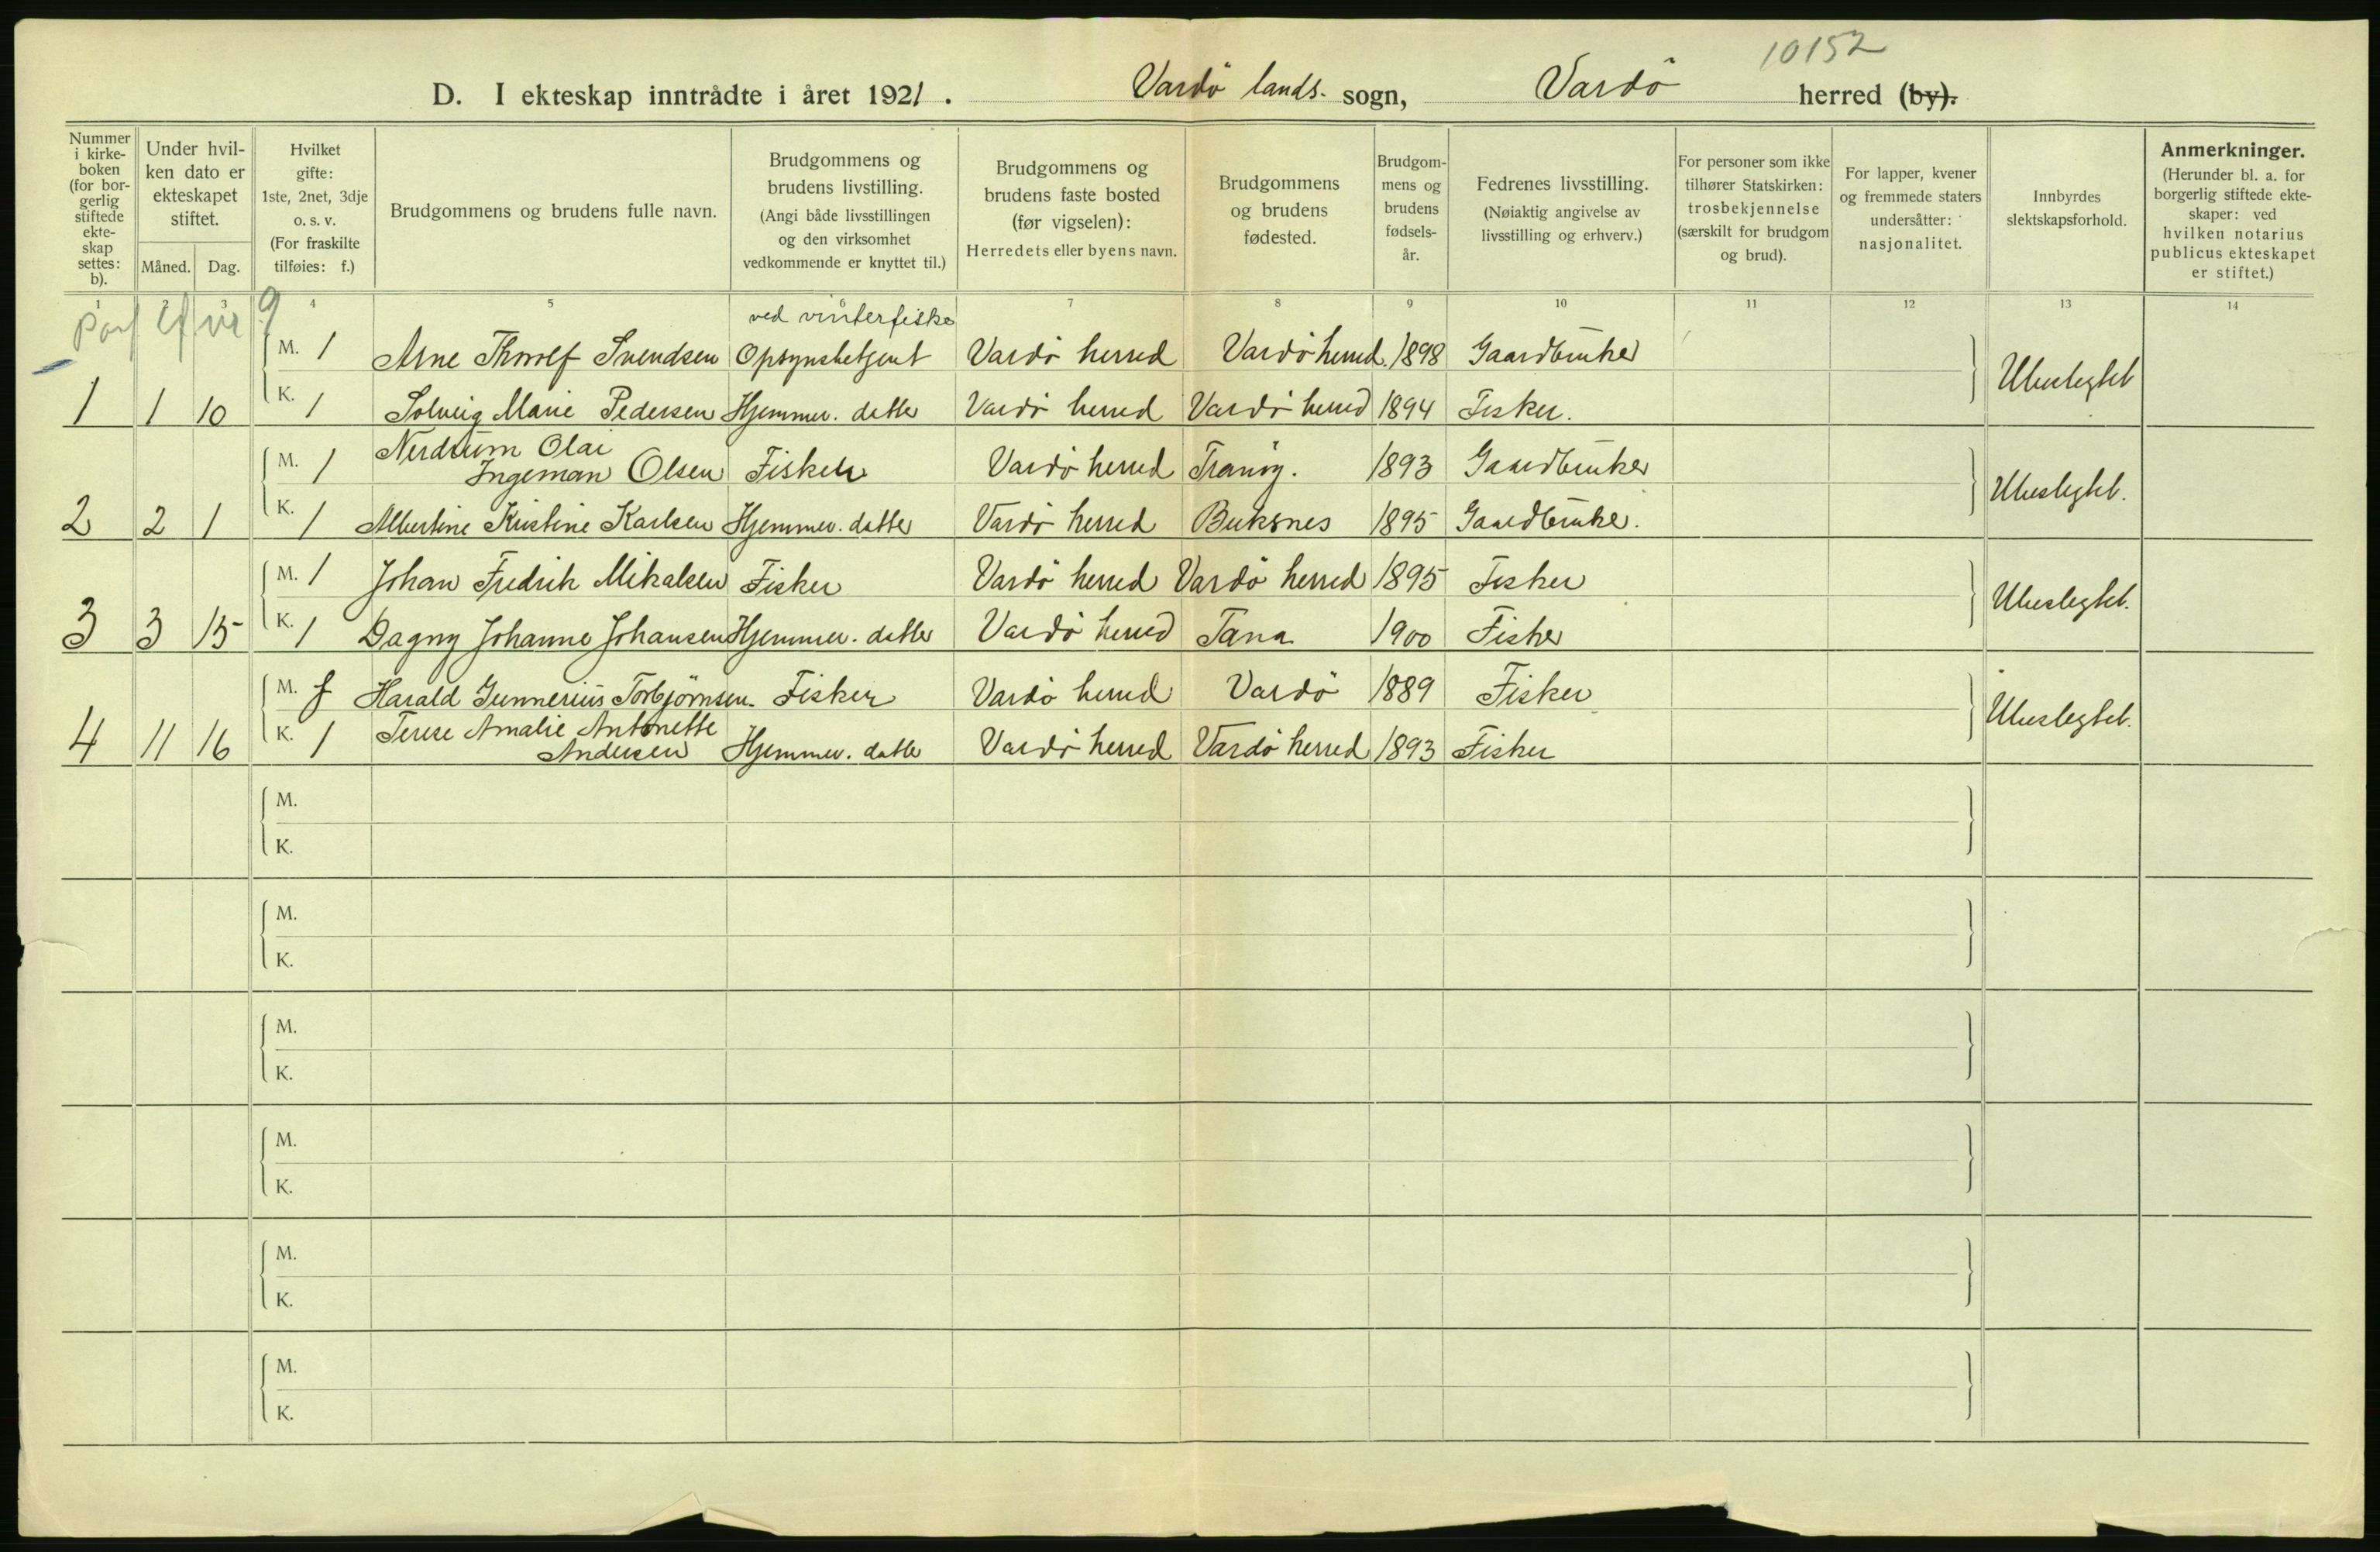 10152
D. I ekteskap inntrådte i året 1921. Vardö lands. sogn, Vardö herred (by).
Nummer i kirke-boken (for bor-gerlig stiftede ekte-skap settes: b).
Under hvil-ken dato er ekteskapet stiftet.
Måned. Dag.
Hvilket gifte: 1ste, 2net, 3dje o. s. v. (For fraskilte tilføies: f.)
Brudgommens og brudens fulle navn.
Brudgommens og brudens livstilling. (Angi både livsstillingen og den virksomhet vedkommende er knyttet til.)
Brudgommens og brudens faste bosted (før vigselen): Herredets eller byens navn.
Brudgommens og brudens fødested.
Brudgom-mens og brudens fødsels-år.
Fedrenes livsstilling. (Nøiaktig angivelse av livsstilling og erhverv.)
For personer som ikke tilhører Statskirken: trosbekjennelse (særskilt for brudgom og brud).
For lapper, kvener og fremmede staters undersåtter: nasjonalitet.
Innbyrdes slektskapsforhold.
Anmerkninger. (Herunder bl. a. for borgerlig stiftede ekte-skaper: ved hvilken notarius publicus ekteskapet er stiftet.)
1 2 3 4 5 6 7 8 9 10 11 12 13 14
ved vinterfiske
M. 1 Arne Thorolf Svendsen Opsynsbetjent Vardö herred Vardö herred. 1898 Gaardbruker
Ubeslegtet
1 1 10 K. 1 Solveig Marie Pedersen Hjemmev. datter Vardö herred Vardö herred 1894 Fisker.
Nerdrum Olai
M. 1 Ingeman Olsen Fisker Vardö herred Tranöy. 1893 Gaardbruker
Ubeslegtet.
2 2 1 K. 1 Albertine Kristine Karlsen Hjemmev. datter Vardö herred Buksnes 1895 Gaardbruker.
M. 1 Johan Fredrik Mikalsen Fisker Vardö herred Vardö herred 1895 Fisker
Ubeslegtet.
3 3 15 K. 1 Dagny Johanne Johansen Hjemmev. datter Vardö herred Tana 1900 Fisker
M. f Harald Gunnerius Torbjörnsen. Fisker Vardö herred Vardö 1889 Fisker
Ubeslegtet.
Terese Amalie Antonette
4 11 16 K. 1 Andersen Hjemmev. datter Vardö herred Vardö herred 1893 Fisker
M.
K.
M.
K.
M.
K.
M.
K.
M.
K.
M.
K.